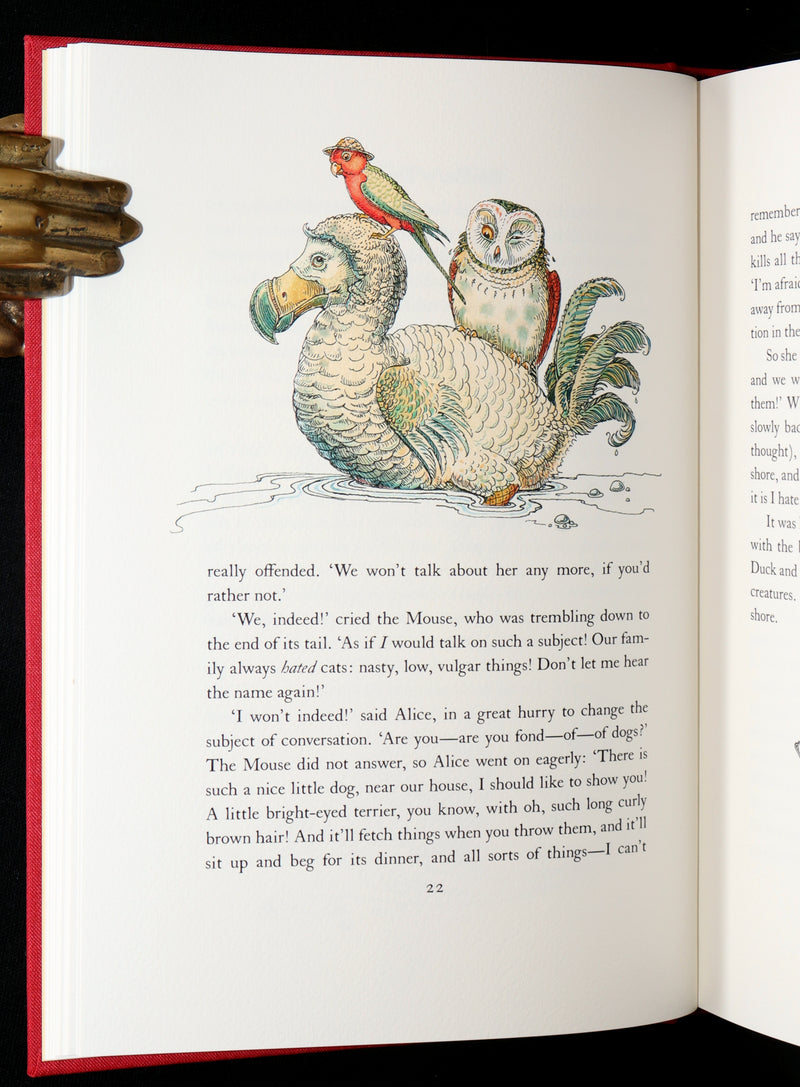 really offended. ‘We won’t talk about her any more, if you’d
rather not.’
‘We, indeed!’ cried the Mouse, who was trembling down to
the end of its tail. ‘As if I would talk on such a subject! Our fam-
ily always hated cats: nasty, low, vulgar things! Don’t let me hear
the name again!’
‘I won’t indeed!’ said Alice, in a great hurry to change the
subject of conversation. ‘Are you—are you fond—of—of dogs?’
The Mouse did not answer, so Alice went on eagerly: ‘There is
such a nice little dog, near our house, I should like to show you!
A little bright-eyed terrier, you know, with oh, such long curly
brown hair! And it’ll fetch things when you throw them, and it’ll
sit up and beg for its dinner, and all sorts of things—I can’t
22
remember
and he say
kills all th
‘I’m afraid
away from
tion in the
So she
and we w
them!’ W
slowly bac
thought),
shore, and
it is I hate
It was
with the
Duck and
creatures.
shore.